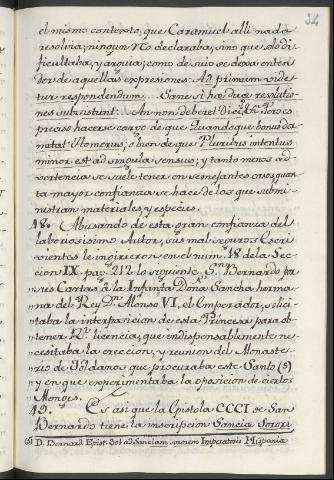 34
el mismo contexto, que Caramuel alli nada
resolvia; ningun Rto declaraba, sino que solo di-
ficultaba, y arguia; como de suio se dexa enten-
der de aquellas expresiones: Ad primum vide-
tur respondendum... Sane si hæ duæ resolutio-
nes subsistunt... An non deberet Dici, &c. Pero es
preciso hacerse cargo de que Quandoque bonus dor-
mitat Homerus; o bien de que Pluribus intentus
minor est ad singula sensus; y tanto menos ad-
vertencia se suele tener en semejantes casos, quan-
ta mayor confianza se hace de los que submi-
nistran materiales, y especies.
18. Abusando de esta gran confianza del
laboriosisimo Autor, sus mal seguros Escri-
vientes le ingirieron en el num. 18 de la Sec-
cion IX. pag. 212 lo siguiente. S.n Bernardo por
sus Cartas à la Infanta Doña Sancha herma-
na del Rey Dn. Alonso VI, el Emperador, solici-
taba la interposicion de esta Princesa para ob-
tener Rl. licencia, que indispensablemente ne-
cesitaba la ereccion, y reunion del Monaste-
rio de Toldanos, que procuraba este Santo (5)
y en que experimentaba la oposicion de ciertos
Monges.
19. Es asi que la Epistola CCCI de San
Bernardo tiene la inscripcion Sanciæ Sorori
(5) D. Bernard. Epist. 301 ad Sanciam sororem Imperatoris Hispaniæ